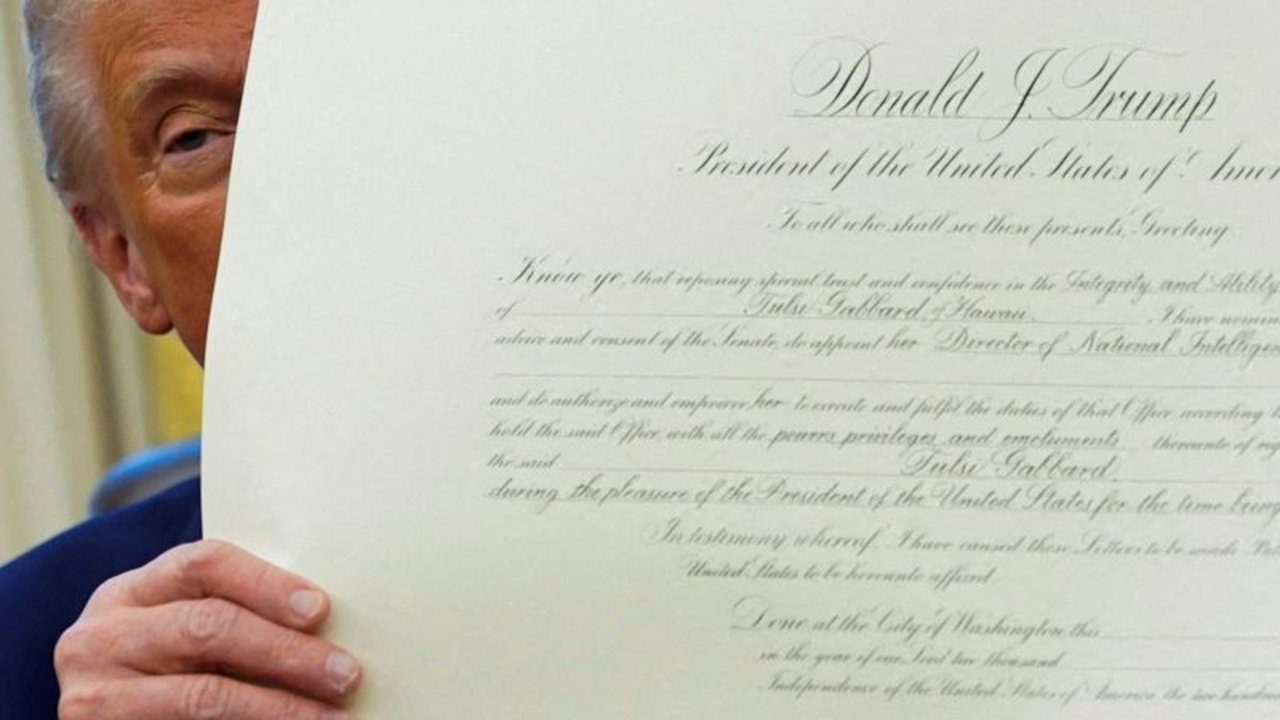 Donald J. Trump
President of the United States of Amer
To all who shall see these presents, Greeting
Know ye, that reposing special trust and confidence in the Integrity and Ability
of Tulsi Gabbard, of Hawaii, I have nomin
advice and consent of the Senate, do appoint her Director of National Intelligen
and do authorize and empower her to execute and fulfil the duties of that Office according t
hold the said Office, with all the powers, privileges and emoluments thereunto of rig
the said Tulsi Gabbard,
during the pleasure of the President of the United States for the time being
In testimony whereof, I have caused these Letters to be made Pat
United States to be hereunto affixed
Done at the City of Washington this
in the year of our Lord two thousand
Independence of the United States of America the two hundred